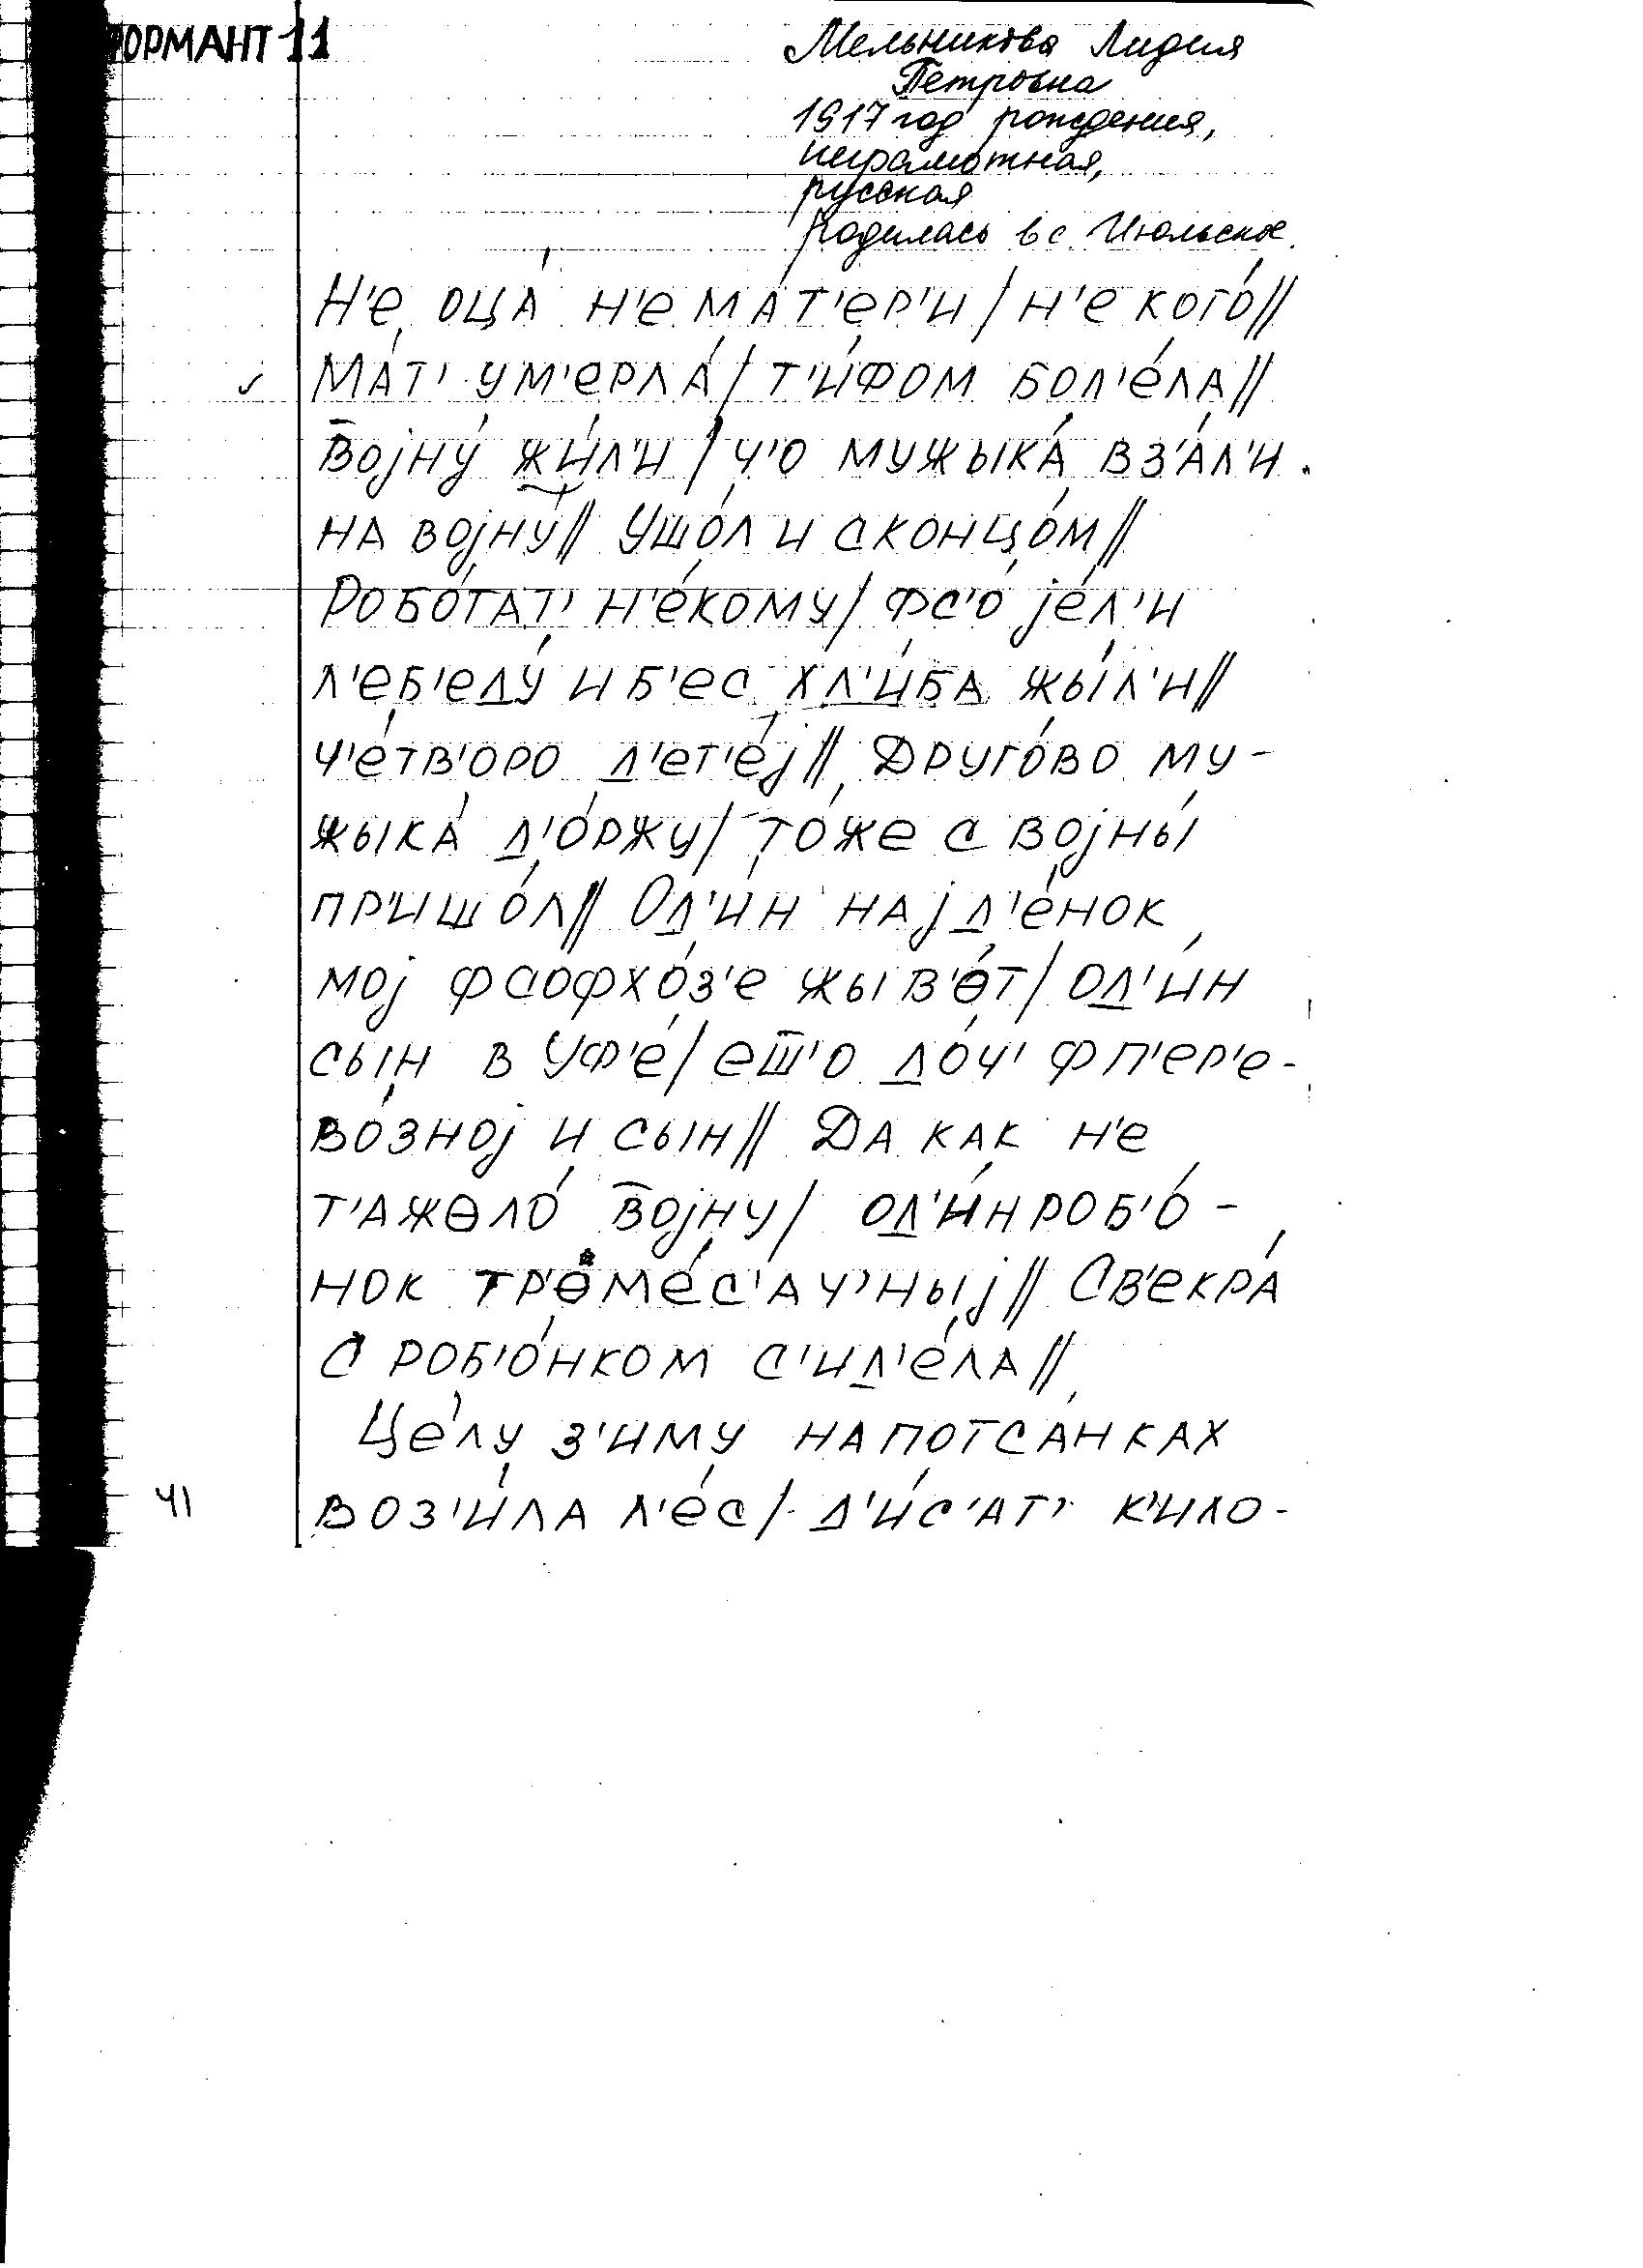 ФОРМАНТ 11
Мельникова Лидия
Петровна
1917 год рождения,
неграмотная,
русская
родилась в с. Июльское.
Н'е оца́ н'е ма́т'ер'и / н'е кого́ //
Ма́т' ум'ерла́ / т'и́фом бол'е́ла //
В̅ојну́ жи́л'и / ч'о мужыка́ вз'а́л'и.
на војну́ // Ушо́л и сконцо́м //
Робо́тат' н'е́кому / фс'о́ је́л'и
л'еб'еду́ и б'ес хл'и́ба жы́л'и //
ч'е́тв'оро д'ет'е́ј // Друго́во му-
жыка́ д'о́ржу / то́же с војны́
пр'ишо́л // Од'и́н најд'е́нок
мој фсофхо́з'е жыв'ө́т / од'и́н
сын в Уф'е́ / еш̅'о до́ч' фп'ер'е-
во́зној и сын // Да как н'е
т'ажөло́ в̅ојну / од'и́н роб'о́-
нок тр'өме́с'ач'ныј // Св'екра́
с роб'о́нком с'ид'е́ла //
Це́лу з'иму напотса́нках
воз'и́ла л'е́с / д'и́с'ат' к'ило-
41